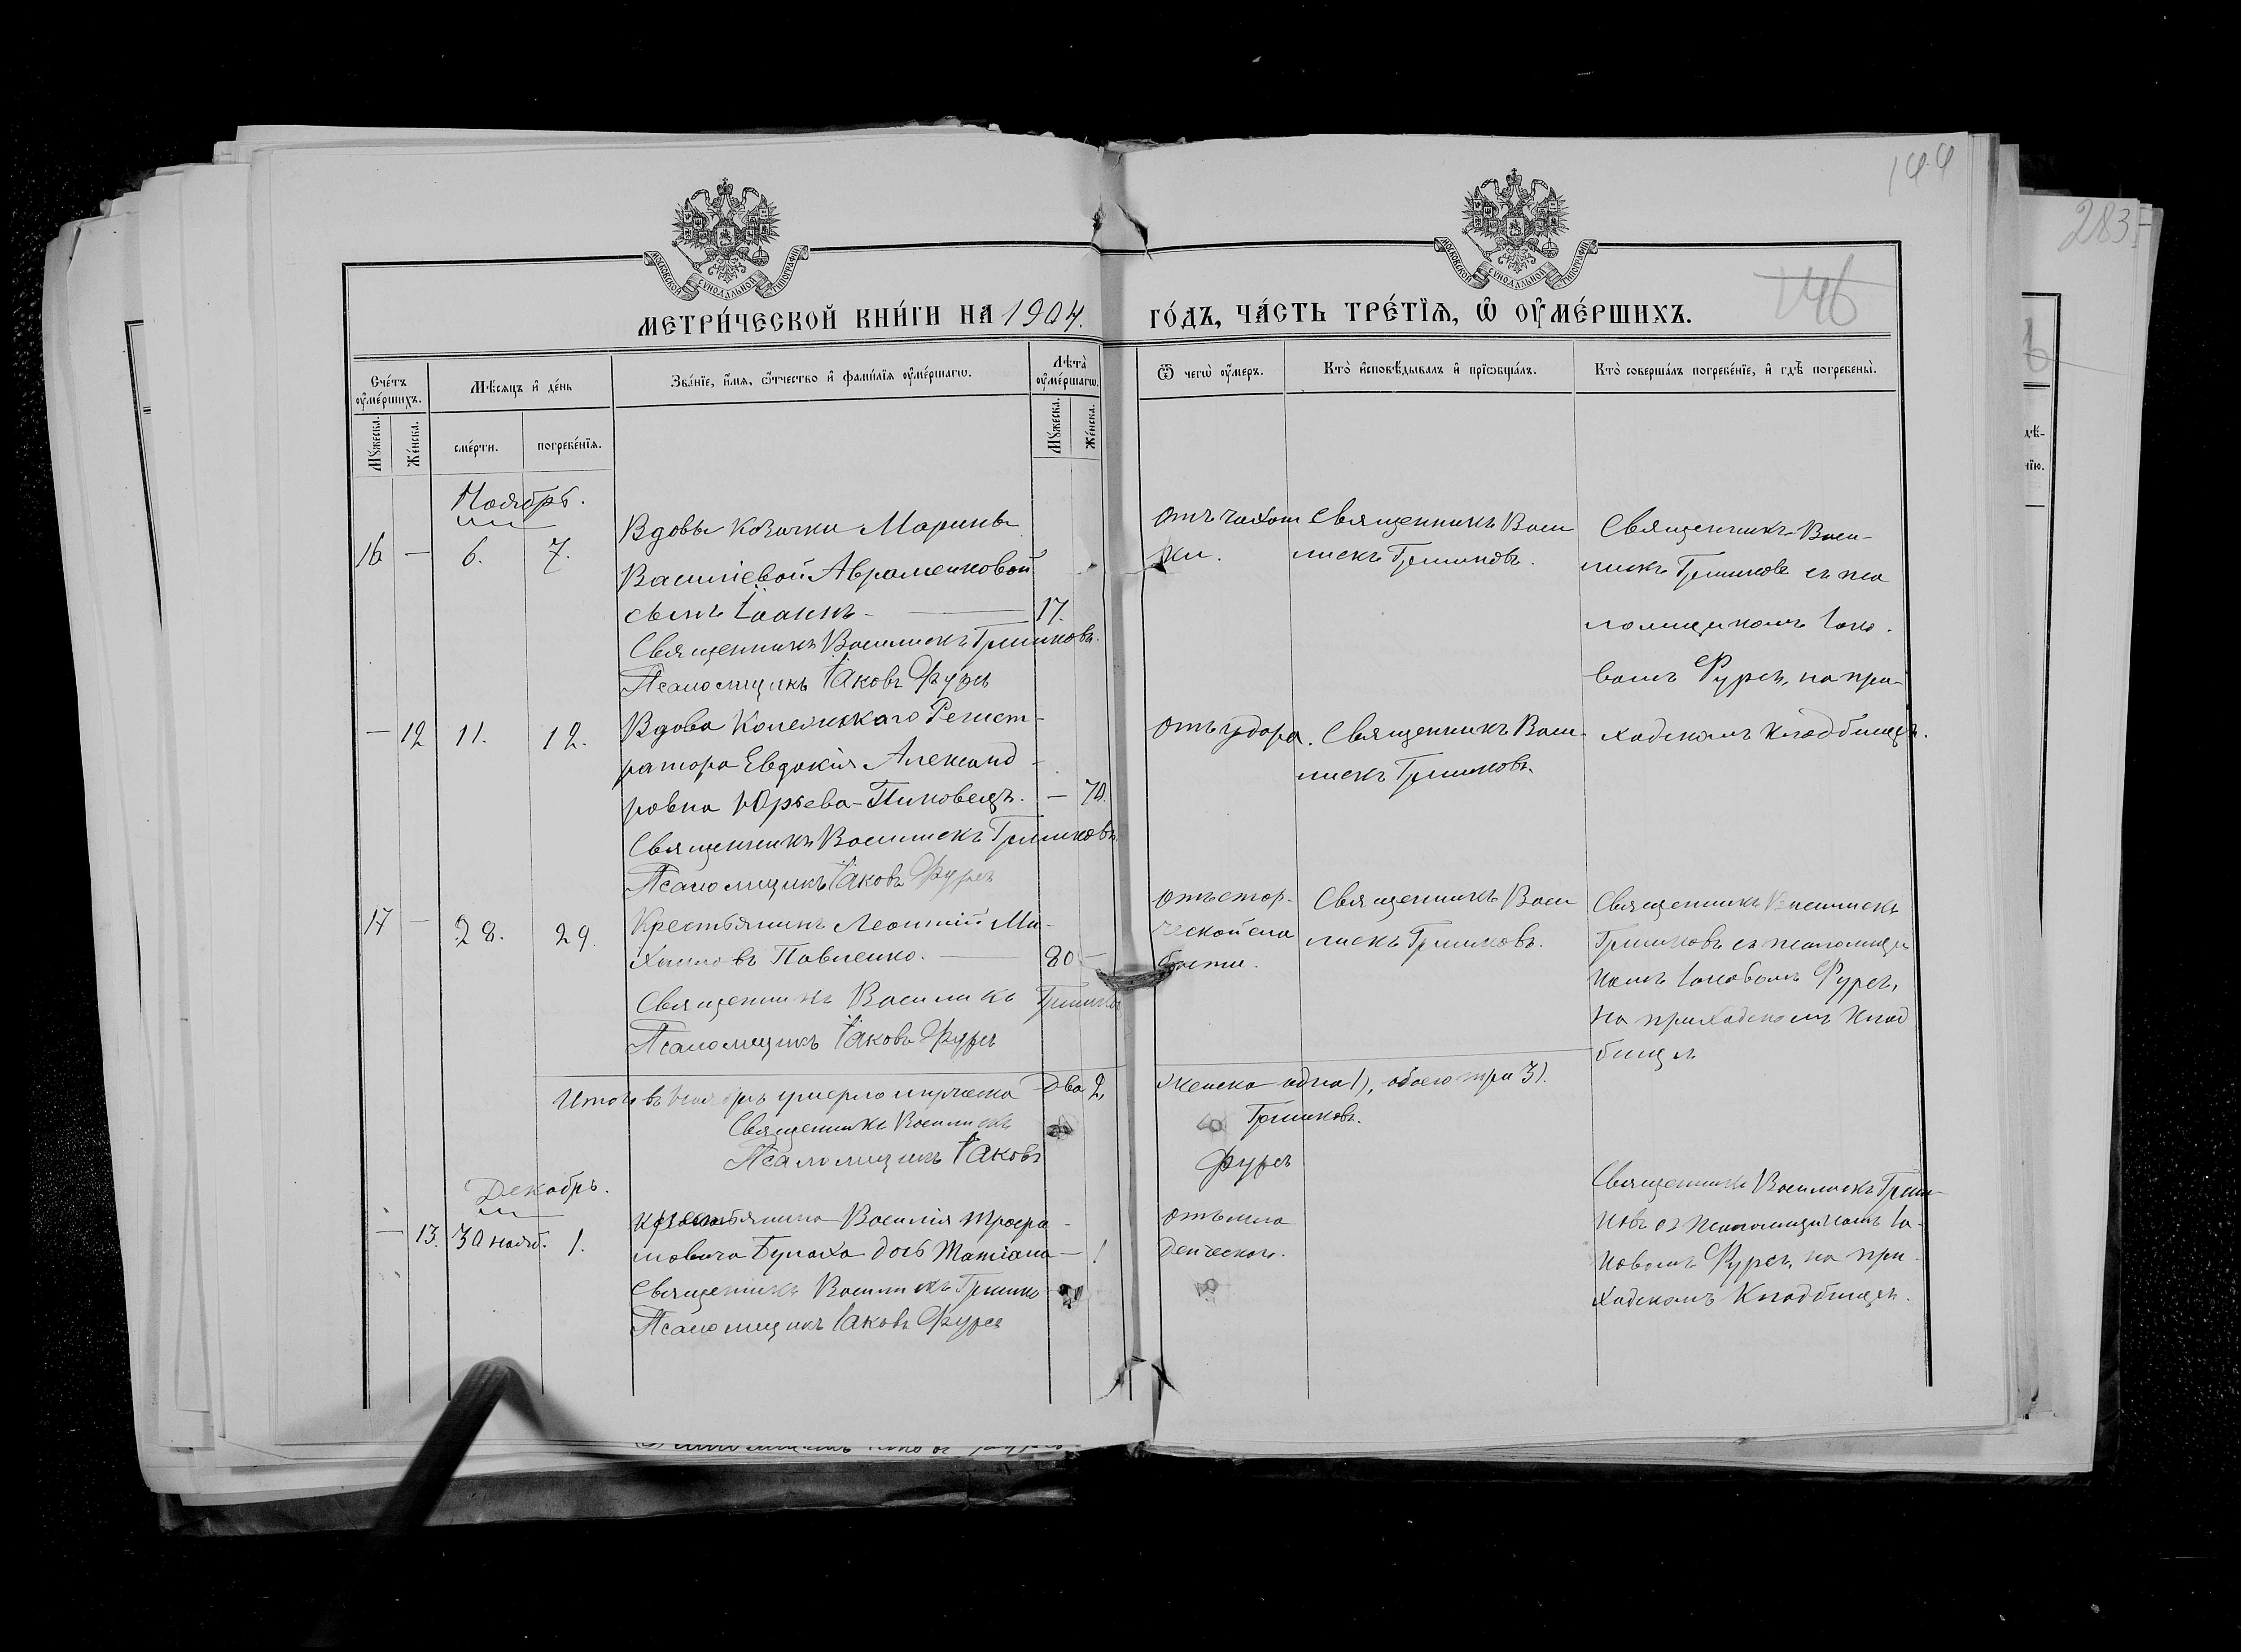 144
283
146
МОСКОВСКОЙ СѴНОДАЛЬНОЙ ТИПОГРАФІИ
МОСКОВСКОЙ СѴНОДАЛЬНОЙ ТИПОГРАФІИ
МЕТРИ́ЧЕСКОЙ КНИ́ГИ НА 1904. ГО́ДЪ, ЧА́СТЬ ТРЕ́ТІѦ, Ѡ ОУМЕ́РШИХЪ.
Сче́тъ оуме́ршихъ.
Мѣсяцъ и де́нь
Зва́нїе, и́мя, о́тчество и фами́лїя оуме́ршагѡ.
Лѣта̀ оуме́ршагѡ.
Ѿ чегѡ̀ оу́меръ.
Кто̀ и҆сповѣ́дывалъ и҆ прїѡбща́лъ.
Кто̀ соверша́лъ погребе́нїе, и҆ гдѣ̀ погребены̀.
Мꙋжеска.
Же́нска.
сме́рти.
погребе́нїѧ.
Мꙋжеска.
Же́нска.
Ноябрь.
16 — 6. 7.
Вдовы козачки Марины
Василіевой Авраменковой
сынъ Іоаннъ — 17.
Священникъ Василискъ Гришковъ.
Псаломщикъ Іаковъ Фурсъ
отъ чахот
ки.
Священникъ Васи
лискъ Гришковъ.
Священникъ Васи-
лискъ Гришковъ съ пса
ломщикомъ Іако.
вомъ Фурсъ, на при-
ходскомъ кладбищѣ.
— 12 11. 12.
Вдова Колежскаго Регист-
ратора Евдокія Александ-
ровна Юрьева-Пиковецъ. — 70.
Священникъ Василискъ Гришковъ.
Псаломщикъ Іаковъ Фурсъ
Отъ удара.
Священникъ Васи-
лискъ Гришковъ.
17 — 28. 29.
Крестьянинъ Леонтій Ми-
хаиловъ Павленко. — 80 —
Священникъ Василискъ Гришковъ
Псаломщикъ Іаковъ Фурсъ
отъ стар-
ческой сла
бости.
Священникъ Васи
лискъ Гришковъ.
Священникъ Василискъ
Гришковъ съ псаломщи
комъ Іаковомъ Фурсъ,
на приходскомъ клад
бищѣ
Итого въ Ноябрѣ умерло мужеска Два 2, женска одна 1), обоего три 3).
Священникъ Василискъ Гришковъ.
Псаломщикъ Іаковъ Фурсъ
Декабрь.
— 13. 30 нояб. 1.
Крестьянина Василія Трофи-
мовича Булаха дочь Татіана — 1
Священникъ Василискъ Гришко
Псаломщикъ Іаковъ Фурсъ
отъ мла
денческой.
Священникъ Василискъ Гриш-
ковъ съ псаломщикомъ Іа-
ковомъ Фурсъ, на при-
ходскомъ кладбищѣ.